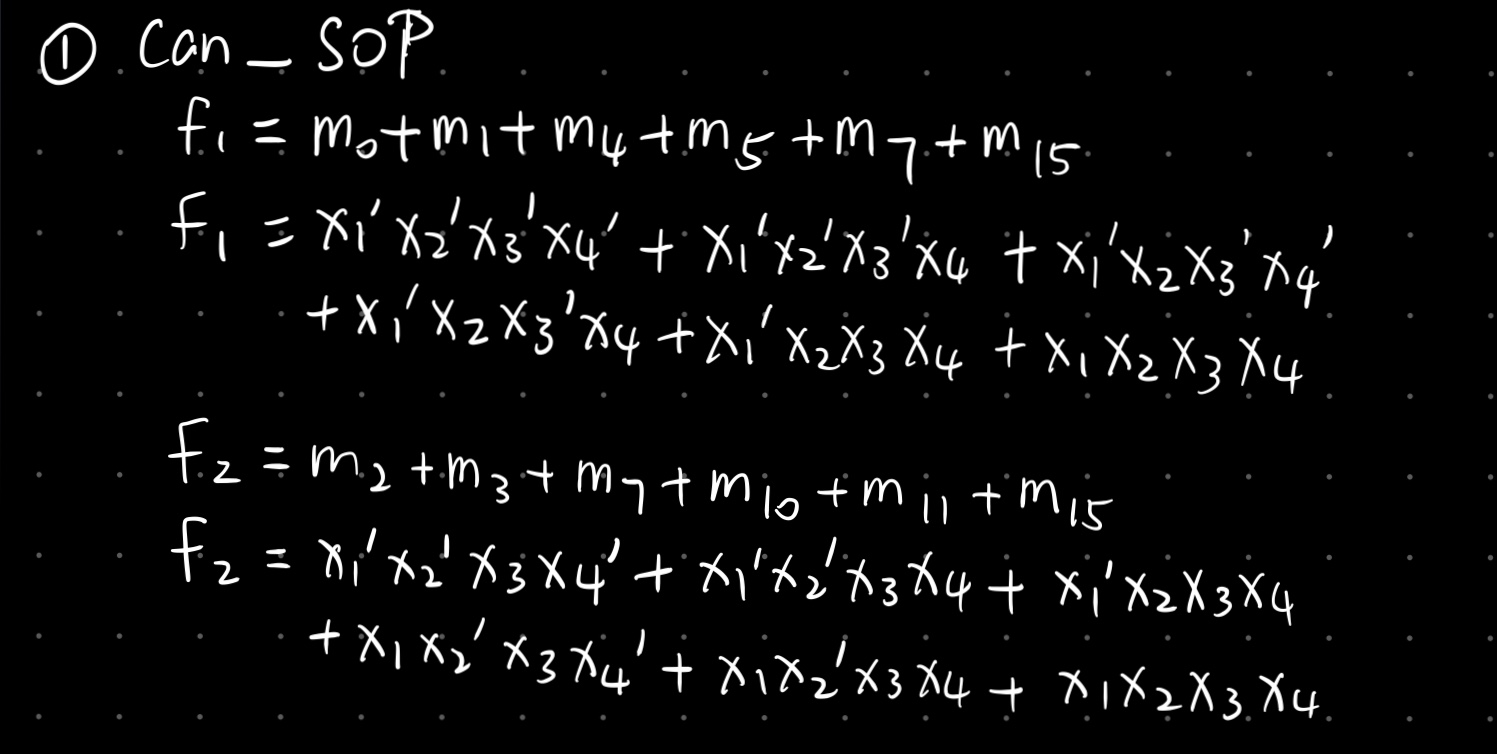 ① Can _ SOP
f₁ = m₀ + m₁ + m₄ + m₅ + m₇ + m₁₅
f₁ = x₁'x₂'x₃'x₄' + x₁'x₂'x₃'x₄ + x₁'x₂x₃'x₄'
+ x₁'x₂x₃'x₄ + x₁'x₂x₃x₄ + x₁x₂x₃x₄
f₂ = m₂ + m₃ + m₇ + m₁₀ + m₁₁ + m₁₅
f₂ = x₁'x₂'x₃x₄' + x₁'x₂'x₃x₄ + x₁'x₂x₃x₄
+ x₁x₂'x₃x₄' + x₁x₂'x₃x₄ + x₁x₂x₃x₄